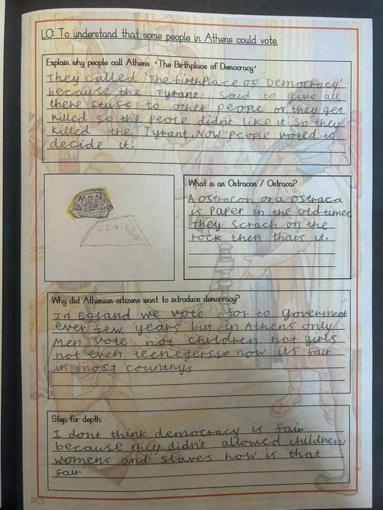 LO: To understand that some people in Athens could vote
Explain why people call Athens 'The Birthplace of Democracy'
They called 'The birthplace of Democracy'
because the Tyrant said to give all
there stuss to other people or they get
killed so the peole didnt like it so they
killed the Tyrant. Now people voted to
decide it.
What is an Ostracon / Ostraca?
A ostracon or a ostraca
is paper in the old times
they scrach on the
rock then thats it.
Why did Athenian citizens want to introduce democracy?
In Egland we vote for to Government
ever few years but in Athens only
Men vote not children not girls
not even teenegers so now its fair
in most countrys
Step for depth:
I dont think democracy is fair
because they didn't allowed children
womens and slaves how is that
fair